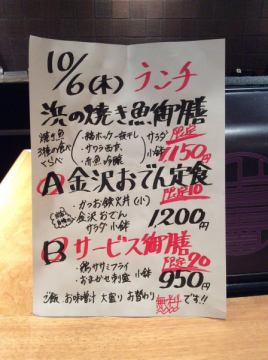 10/6(木) ランチ
浜の焼き魚御膳
焼き魚
3種の食べ
くらべ
・縞ホッケ一夜干し
・サワラ西京
・赤魚吟醸
サラダ
小鉢
限定
1,150円
A 金沢おでん定食
限定10
・かつお鉄火丼(小)
金沢おでん
サラダ 小鉢
1,200円
B サービス御膳
限定20
・鶏ササミフライ
・おまかせ刺身 小鉢
950円
ご飯 お味噌汁 大盛り お替わり 無料です!!